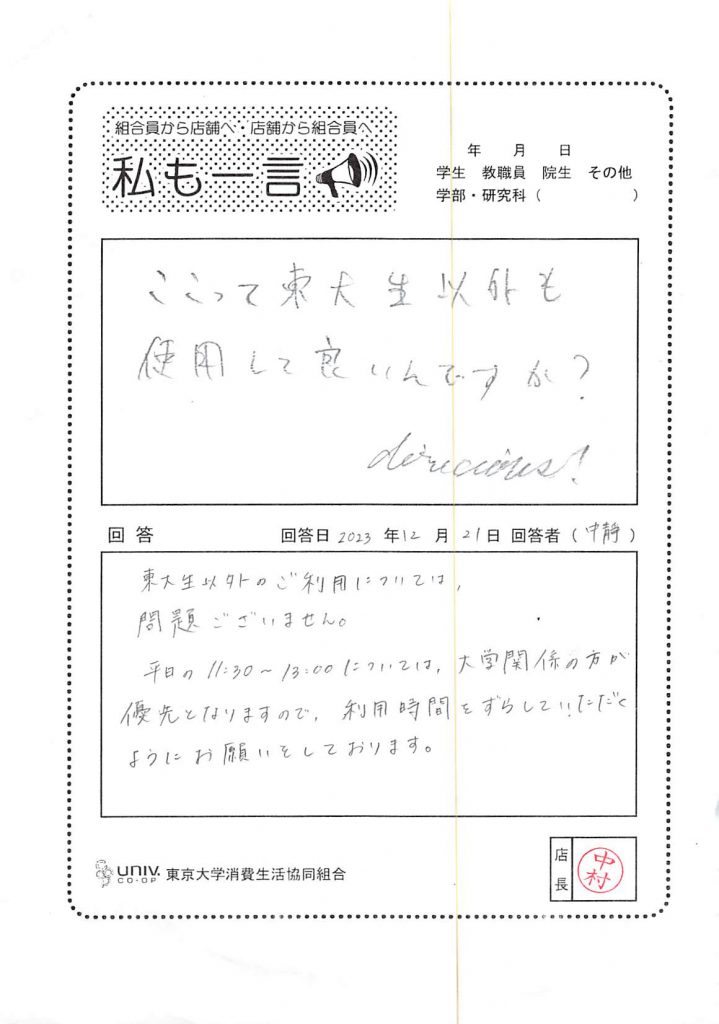 組合員から店舗へ・店舗から組合員へ
私も一言
年 月 日
学生 教職員 院生 その他
学部・研究科( )
ここって東大生以外も
使用して良いんですか?
direcious!
回答 回答日 2023 年 12 月 21 日 回答者(中静)
東大生以外のご利用については、
問題ございません。
平日の11:30~13:00については、大学関係の方が
優先となりますので、利用時間をずらしていただく
ようにお願いをしております。
UNIV. CO-OP 東京大学消費生活協同組合
店長 中村